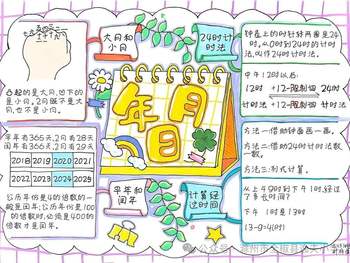 七 五 三 一
十 八
大月和
小月
凸起的是大月,凹下的
是小月。2月既不是大
月,也不是小月。
平年有365天,2月有28天
闰年有366天,2月有29天
2018 2019 2020 2021
2022 2023 2024 2025
公历年份是4的倍数的一
般是闰年;公历年份是100
的倍数时,必须是400的
倍数才是闰年。
年月日
平年和
闰年
24时计
时法
计算经
过时间
钟表上的时针转两圈是24
时,从0时到24时的计时
法,叫作24时计时法。
中午12时以后:
12时 +12-限制词 24时
计时法 +限制词-12 计时法
方法一:借助钟面画一画。
方法二:借助24时计时法数
数。
方法三:列式计算。
从上午9时到下午1时,经过
了多长时间?
下午1时是13时
13-9=4(时)